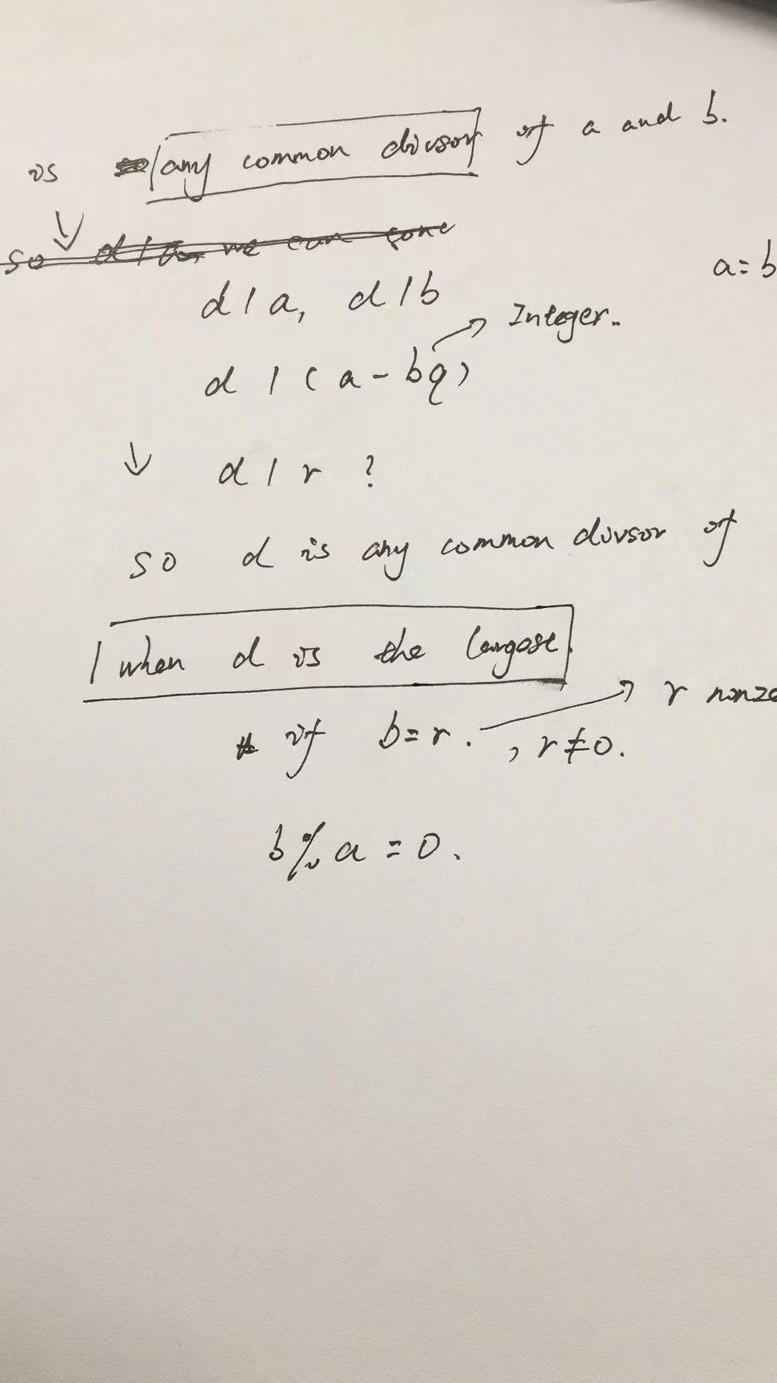 is any common divsor of a and b.
so d | we can
a = b
d | a, d | b
Integer.
d | ( a - bq )
d | r ?
so d is any common divsor of
when d is the largest.
if b = r. , r ≠ 0.
r nonze
b % a = 0.